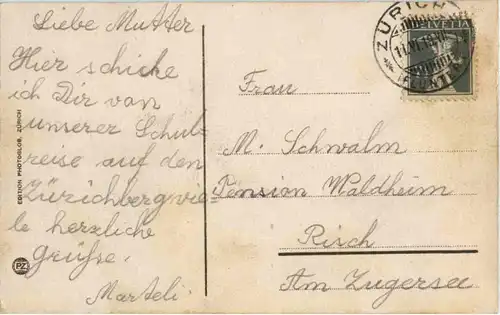 Liebe Mutter
Hier schicke
ich Dir von
unserer Schul-
reise auf den
Zürichberg vie-
le herzliche
Grüsse.
Marteli.
EDITION PHOTOGLOB, ZÜRICH
PZ
ZÜRICH
HELVETIA
Frau
M. Schwalm
Pension Waldheim
Risch
Am Zugersee